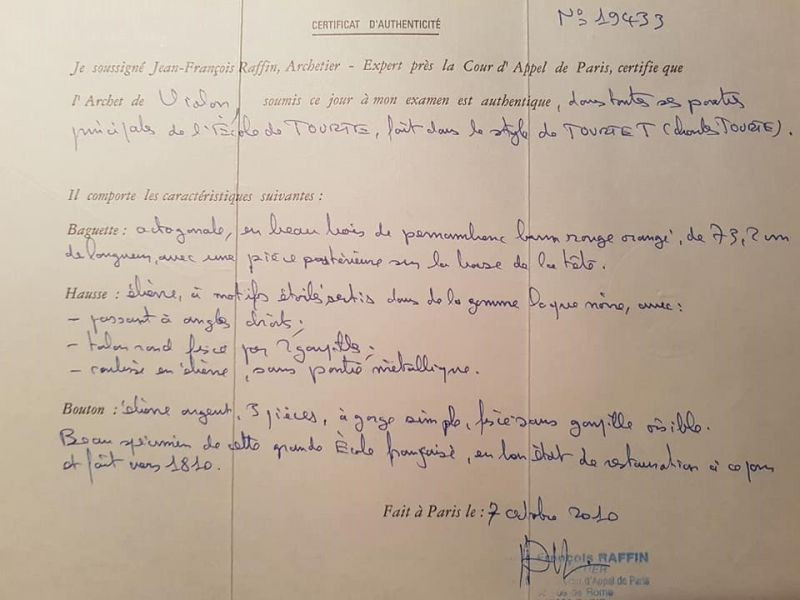 CERTIFICAT D'AUTHENTICITÉ
N° 19433
Je soussigné Jean-François Raffin, Archetier - Expert près la Cour d'Appel de Paris, certifie que
l'Archet de Violon, soumis ce jour à mon examen est authentique, dans toutes ses parties
principales de l'École de TOURTE, fait dans le style de TOURTE T (Charles TOURTE).
Il comporte les caractéristiques suivantes :
Baguette : octogonale, en beau bois de pernambouc brun rouge orangé, de 73,2 cm
de longueur, avec une pièce postérieure sur la base de la tête.
Hausse : ébène, à motifs étoilés sertis dans de la gomme laque noire, avec :
- passant à angles droits ;
- talon rond fixé par 2 goupilles ;
- coulisse en ébène, sans partie métallique.
Bouton : ébène argent, 3 pièces, à gorge simple, fixé sans goupille visible.
Beau spécimen de cette grande École française, en bon état de restauration à ce jour
et fait vers 1810.
Fait à Paris le : 7 octobre 2010
François RAFFIN
d'Appel de Paris
de Rome